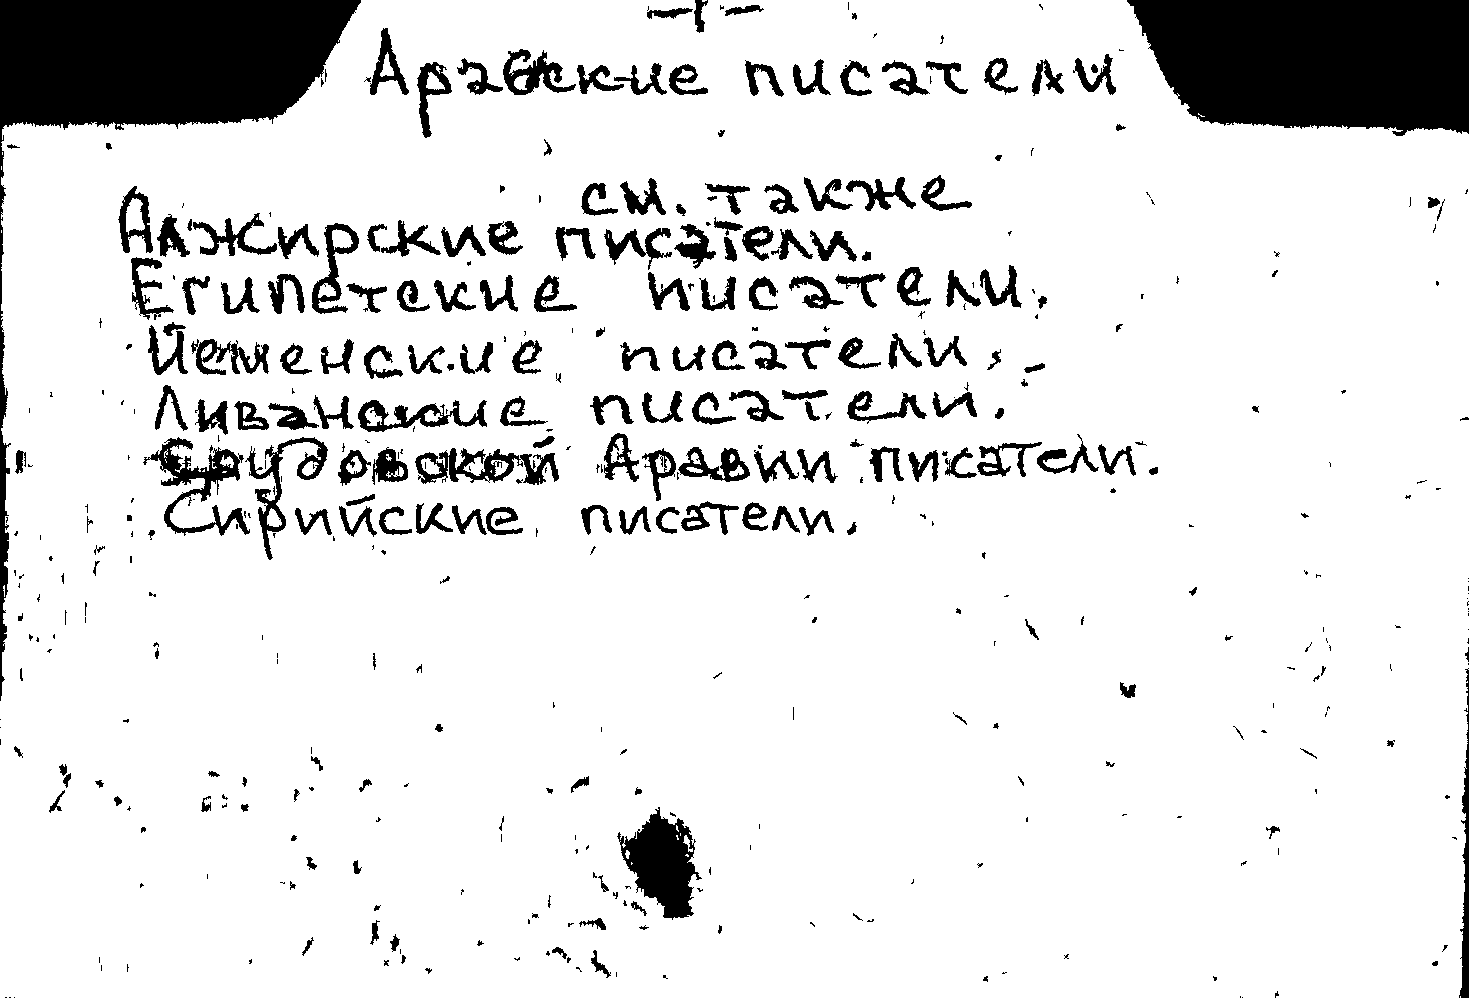 Арабские писатели
см. также
Алжирские писатели.
Египетские писатели.
Йеменские писатели.
Ливанские писатели.
Саудовской Аравии писатели.
Сирийские писатели.